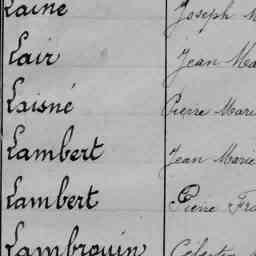 Lainé Joseph
Lair Jean
Laisné Pierre Mari
Lambert Jean Marie
Lambert Pierre Fra
Lambrouin Célestin